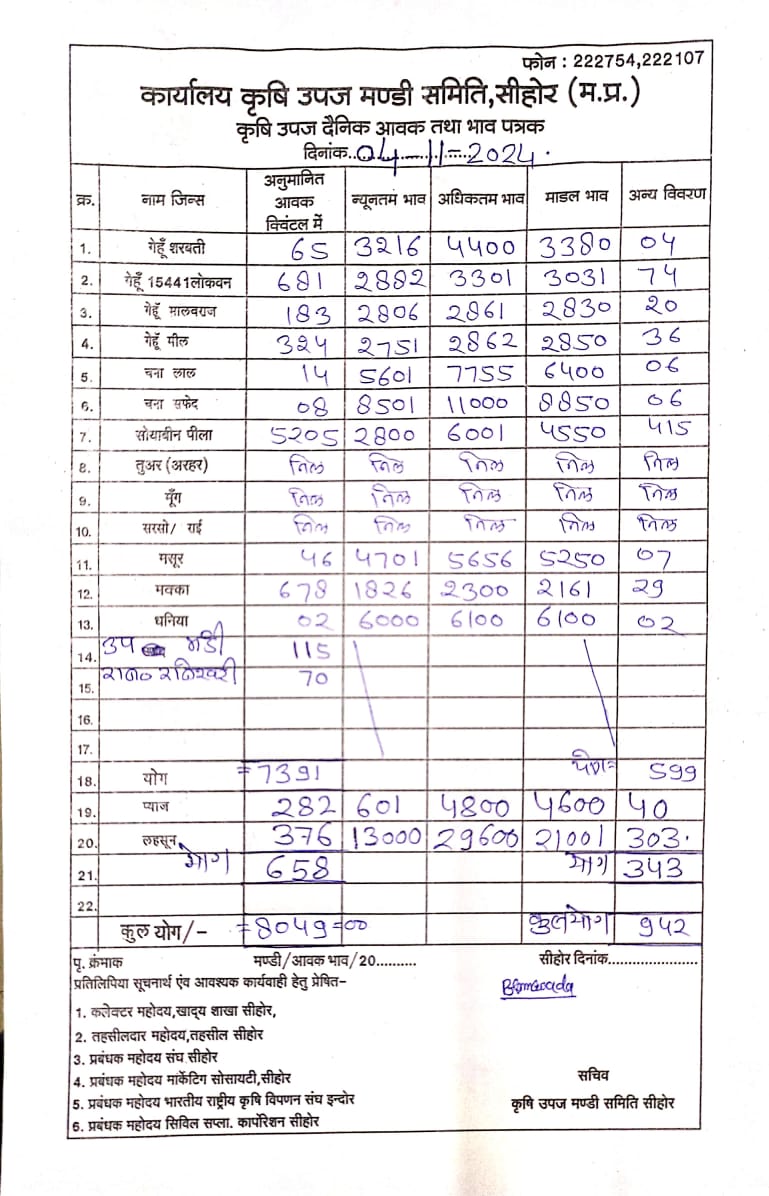 फोन : 222754,222107
कार्यालय कृषि उपज मण्डी समिति,सीहोर (म.प्र.)
कृषि उपज दैनिक आवक तथा भाव पत्रक
दिनांक..04-11-2024.
क्र. नाम जिन्स अनुमानित आवक क्विंटल में न्यूनतम भाव अधिकतम भाव माडल भाव अन्य विवरण
1. गेहूँ शरबती 65 3216 4400 3380 04
2. गेहूँ 15441लोकवन 681 2882 3301 3031 74
3. गेहूँ मालवराज 183 2806 2861 2830 20
4. गेहूँ मील 324 2751 2862 2850 36
5. चना लाल 14 5601 7755 6400 06
6. चना सफेद 08 8501 11000 8850 06
7. सोयाबीन पीला 5205 2800 6001 4550 415
8. तुअर (अरहर) निल निल निल निल निल
9. मूँग निल निल निल निल निल
10. सरसो/ राई निल निल निल निल निल
11. मसूर 46 4701 5656 5250 07
12. मक्का 678 1826 2300 2161 29
13. धनिया 02 6000 6100 6100 02
14. उप मंडी 115
15. 70
16.
17.
18. योग =7391 योग= 599
19. प्याज 282 601 4800 4600 40
20. लहसून 376 13000 29600 21001 303.
21. योग 658 योग 343
22.
कुल योग/- =8049=00 कुलयोग 942
पृ. क्रंमाक मण्डी/आवक भाव/20.......... सीहोर दिनांक......................
प्रतिलिपिया सूचनार्थ एंव आवश्यक कार्यवाही हेतु प्रेषित-
1. कलेक्टर महोदय,खाद्य शाखा सीहोर,
2. तहसीलदार महोदय,तहसील सीहोर
3. प्रबंधक महोदय संघ सीहोर
4. प्रबंधक महोदय मार्केटिग सोसायटी,सीहोर सचिव
5. प्रबंधक महोदय भारतीय राष्ट्रीय कृषि विपणन संघ इन्दोर कृषि उपज मण्डी समिति सीहोर
6. प्रबंधक महोदय सिविल सप्ला. कार्पोरेशन सीहोर